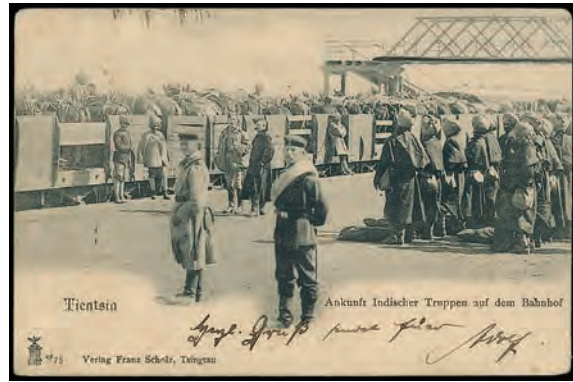 Tientsin
Ankunft Indischer Truppen auf dem Bahnhof
Herzl. Gruß sendet Adolf
Verlag Franz Scholz, Tsingtau